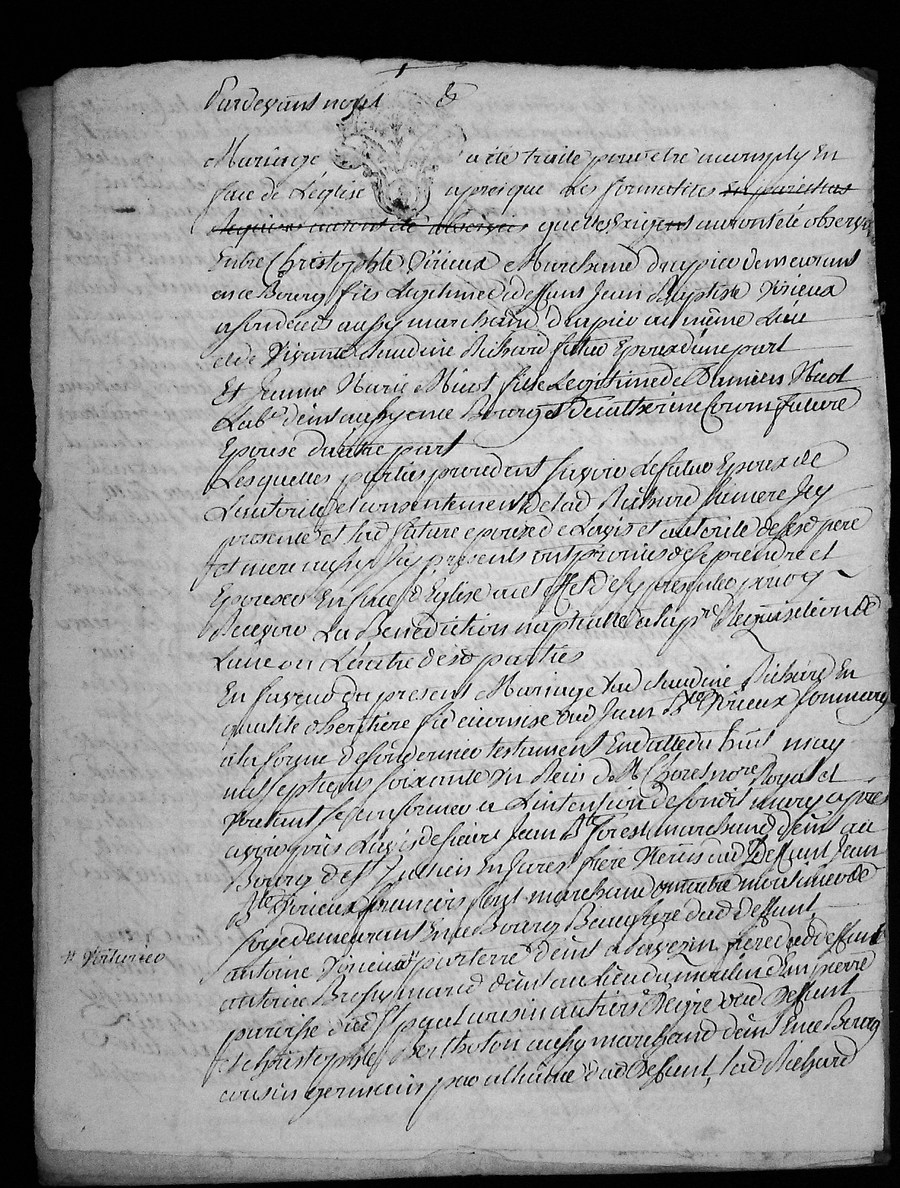 Pardevant nous &
Mariage a été traité pour être accomply En
face de L'église apres que Les formalites en pareil cas
requises auront été observées quelles Exigent auront été observé
Entre Christophle Virieux Marchand drapier demeurant
en ce Bourg fils Legitime de deffunt Jean Baptiste Virieux
aussy marchand drapier au même Lieu
et de Vivante claudine Richard futur Epoux d'une part
Et Jeanne Marie Huot fille Legitime de Damien Huot
Lab.r dem.t aussy en ce Bourg et de catherine future
Epouse d'autre part
Lesquelles parties procedent sçavoir Le futur Epoux de
L'autorité et consentement de lad Richard sa mere Icy
presente et lad future epouse de L'avis et autorité de sesd pere
et mere aussy Icy presents ont promis de se prendre et
Epouser En face d'Eglise a cet effet de se y presenter pour y
Recevoir La Benediction nuptialle a la pr.e Requisition de
L'une ou L'autre desd parties
En faveur du present Mariage lad claudine Richard En
qualité d'heritiere fideicomise dud Jean B.te Virieux son mary
a la forme de son dernier testament En datte du huit may
mil sept cents soixante un Reçu de M.e nore Royal et
voulant se conformer a L'intention de sondit mary apres
avoir pris L'avis de sieurs Jean B.te Forest marchand dem.t au
Bourg de S.t Julien En Jarest frère uterin dud Deffunt Jean
B.te Virieux, francois marchand moulinier de
soye demeurant En ce Bourg Beaufrere dud deffunt
antoine Virieux dem.t a frere dud deffunt
antoine marchd dem.t au Lieu du moulin d'En pierre
paroisse dud S.t paul cousin au tiers degré dud Deffunt
et christophle Bertholon aussy marchand dem.t En ce Bourg
cousin germain par alliance dud Deffunt, lad Richard
V. Voiturier